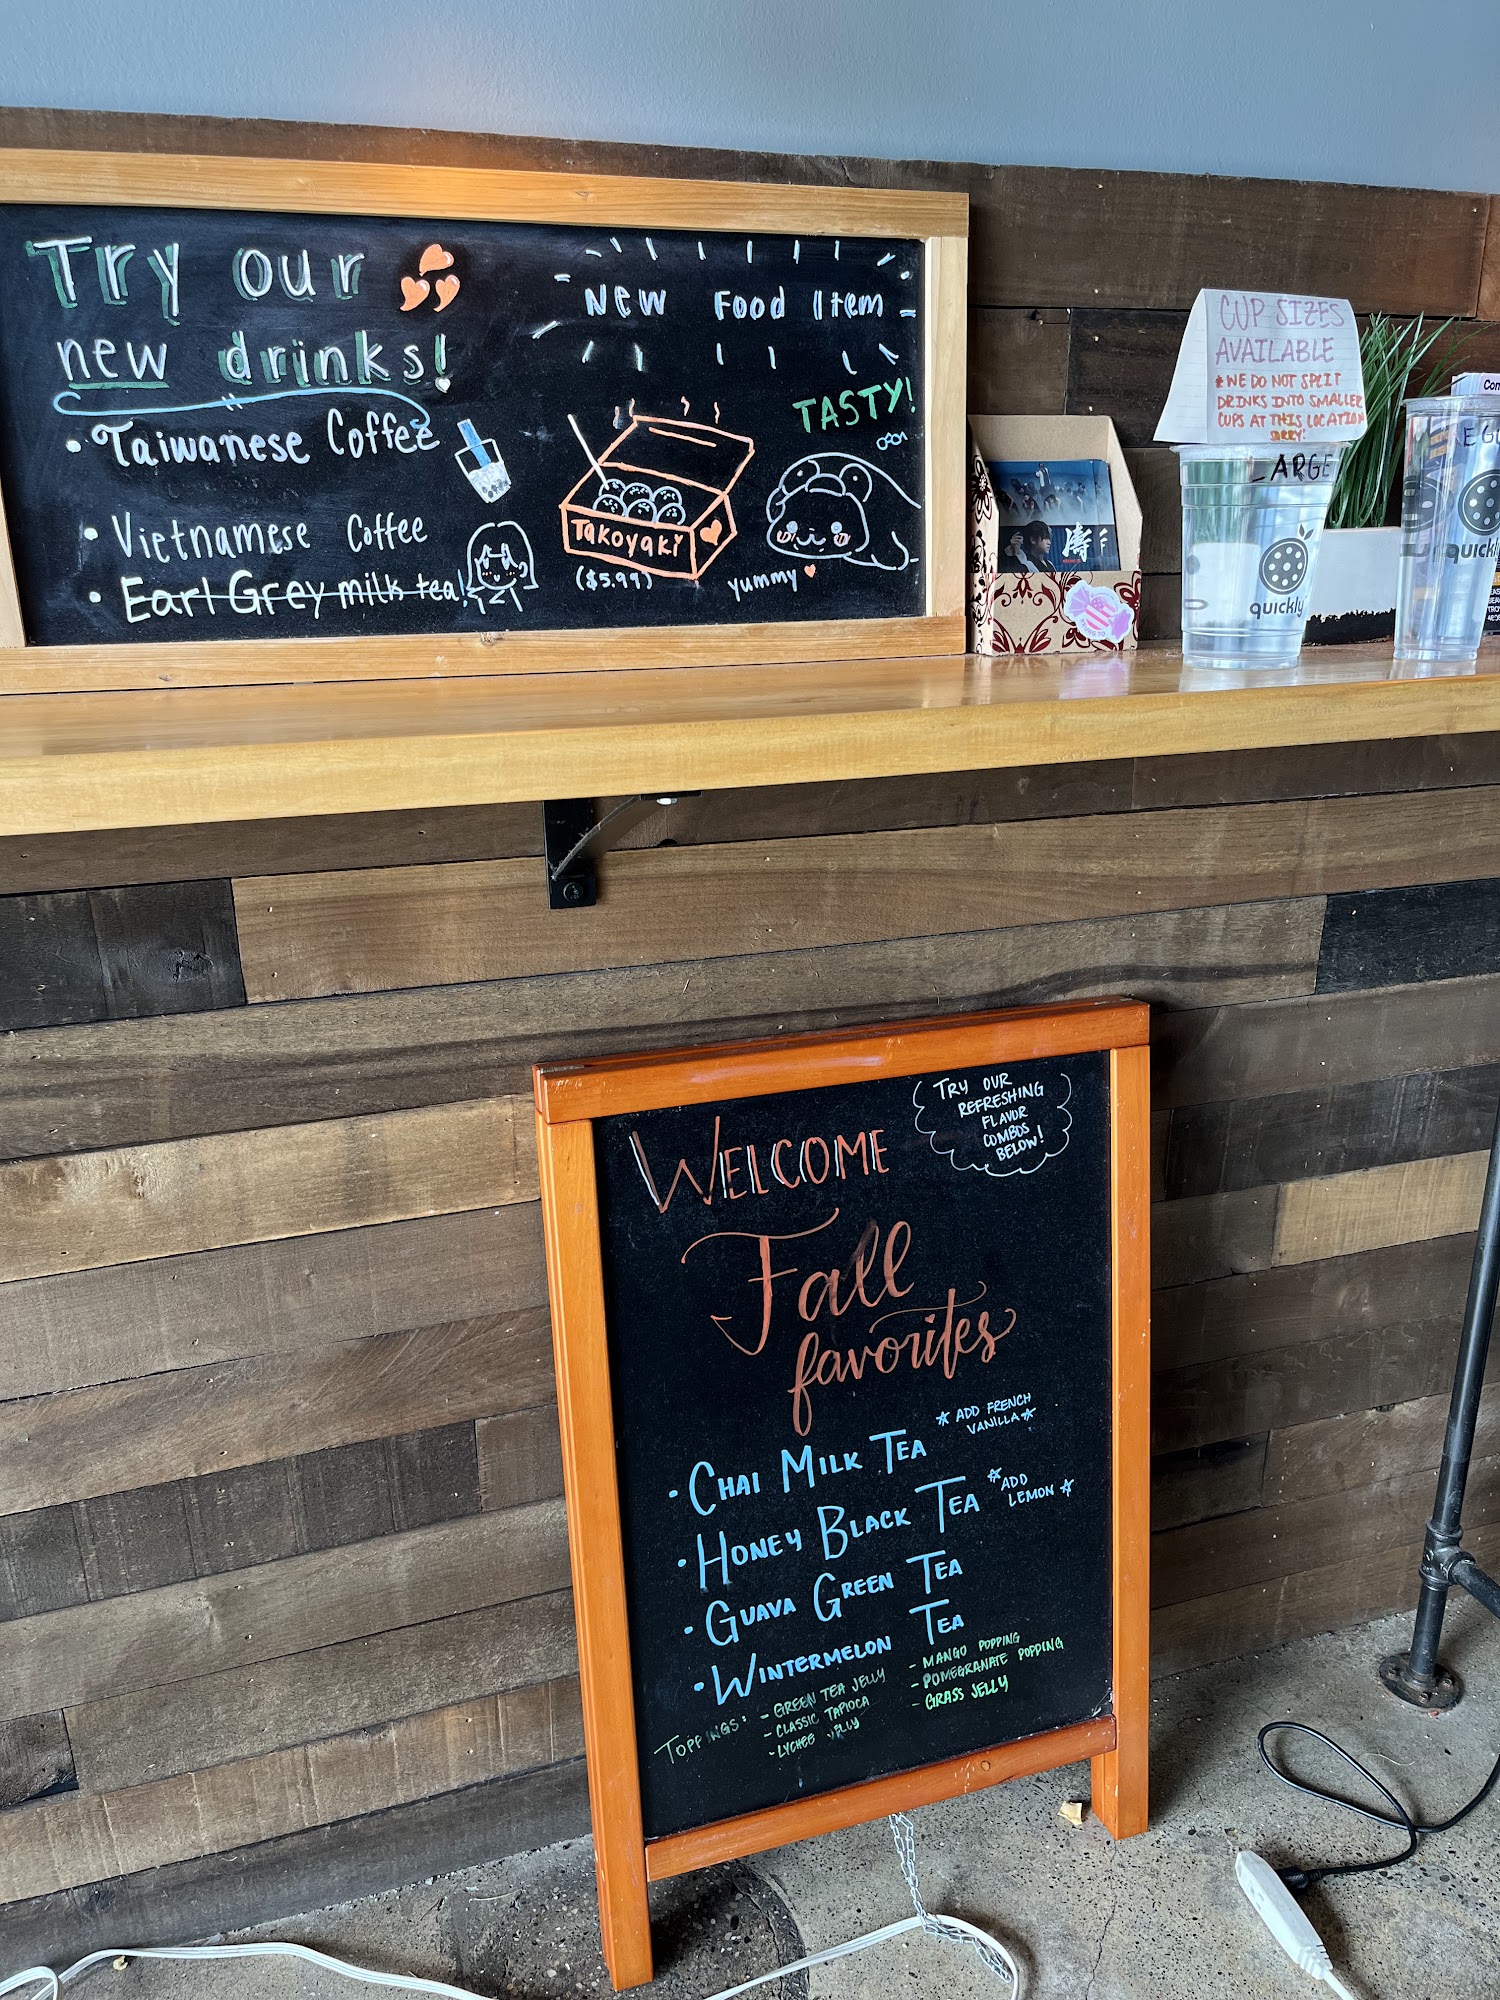 Try our
new drinks!
• Taiwanese Coffee
• Vietnamese Coffee
• Earl Grey milk tea!
New Food Item
TASTY!
Takoyaki
($5.99)
yummy
CUP SIZES
AVAILABLE
* WE DO NOT SPLIT
DRINKS INTO SMALLER
CUPS AT THIS LOCATION
SORRY!
LARGE
quickly
quickly
濤
WELCOME
TRY OUR
REFRESHING
FLAVOR
COMBOS
BELOW!
Fall
favorites
• CHAI MILK TEA
ADD FRENCH
VANILLA
• HONEY BLACK TEA
ADD
LEMON
• GUAVA GREEN TEA
• WINTERMELON TEA
TOPPINGS:
- GREEN TEA JELLY
- CLASSIC TAPIOCA
- LYCHEE JELLY
- MANGO POPPING
- POMEGRANATE POPPING
- GRASS JELLY